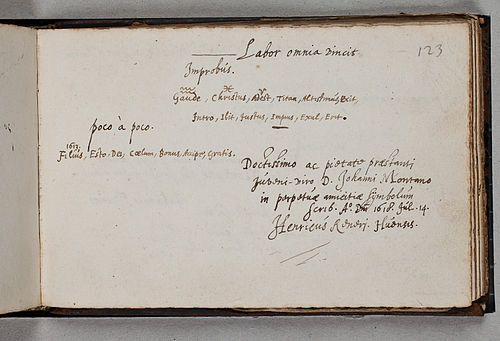 123
Labor omnia vincit
Improbus.
Gaude, Christus, Adest, Titan, Altissimus, Exit,
Intro, Ilit, Justus, Impus, Exul, Erit.
poco à poco.
1617.
Filius, Esto, Dei, Cœlum, Bonus, Accipe, Gratis.
Doctissimo ac pietate præstanti
Juveni-viro D. Johanni Montano
in perpetuæ amicitiæ symbolum
Scrib. Aº. Dni 1618. Jül. 14.
Henricus Reneri. Huensis.